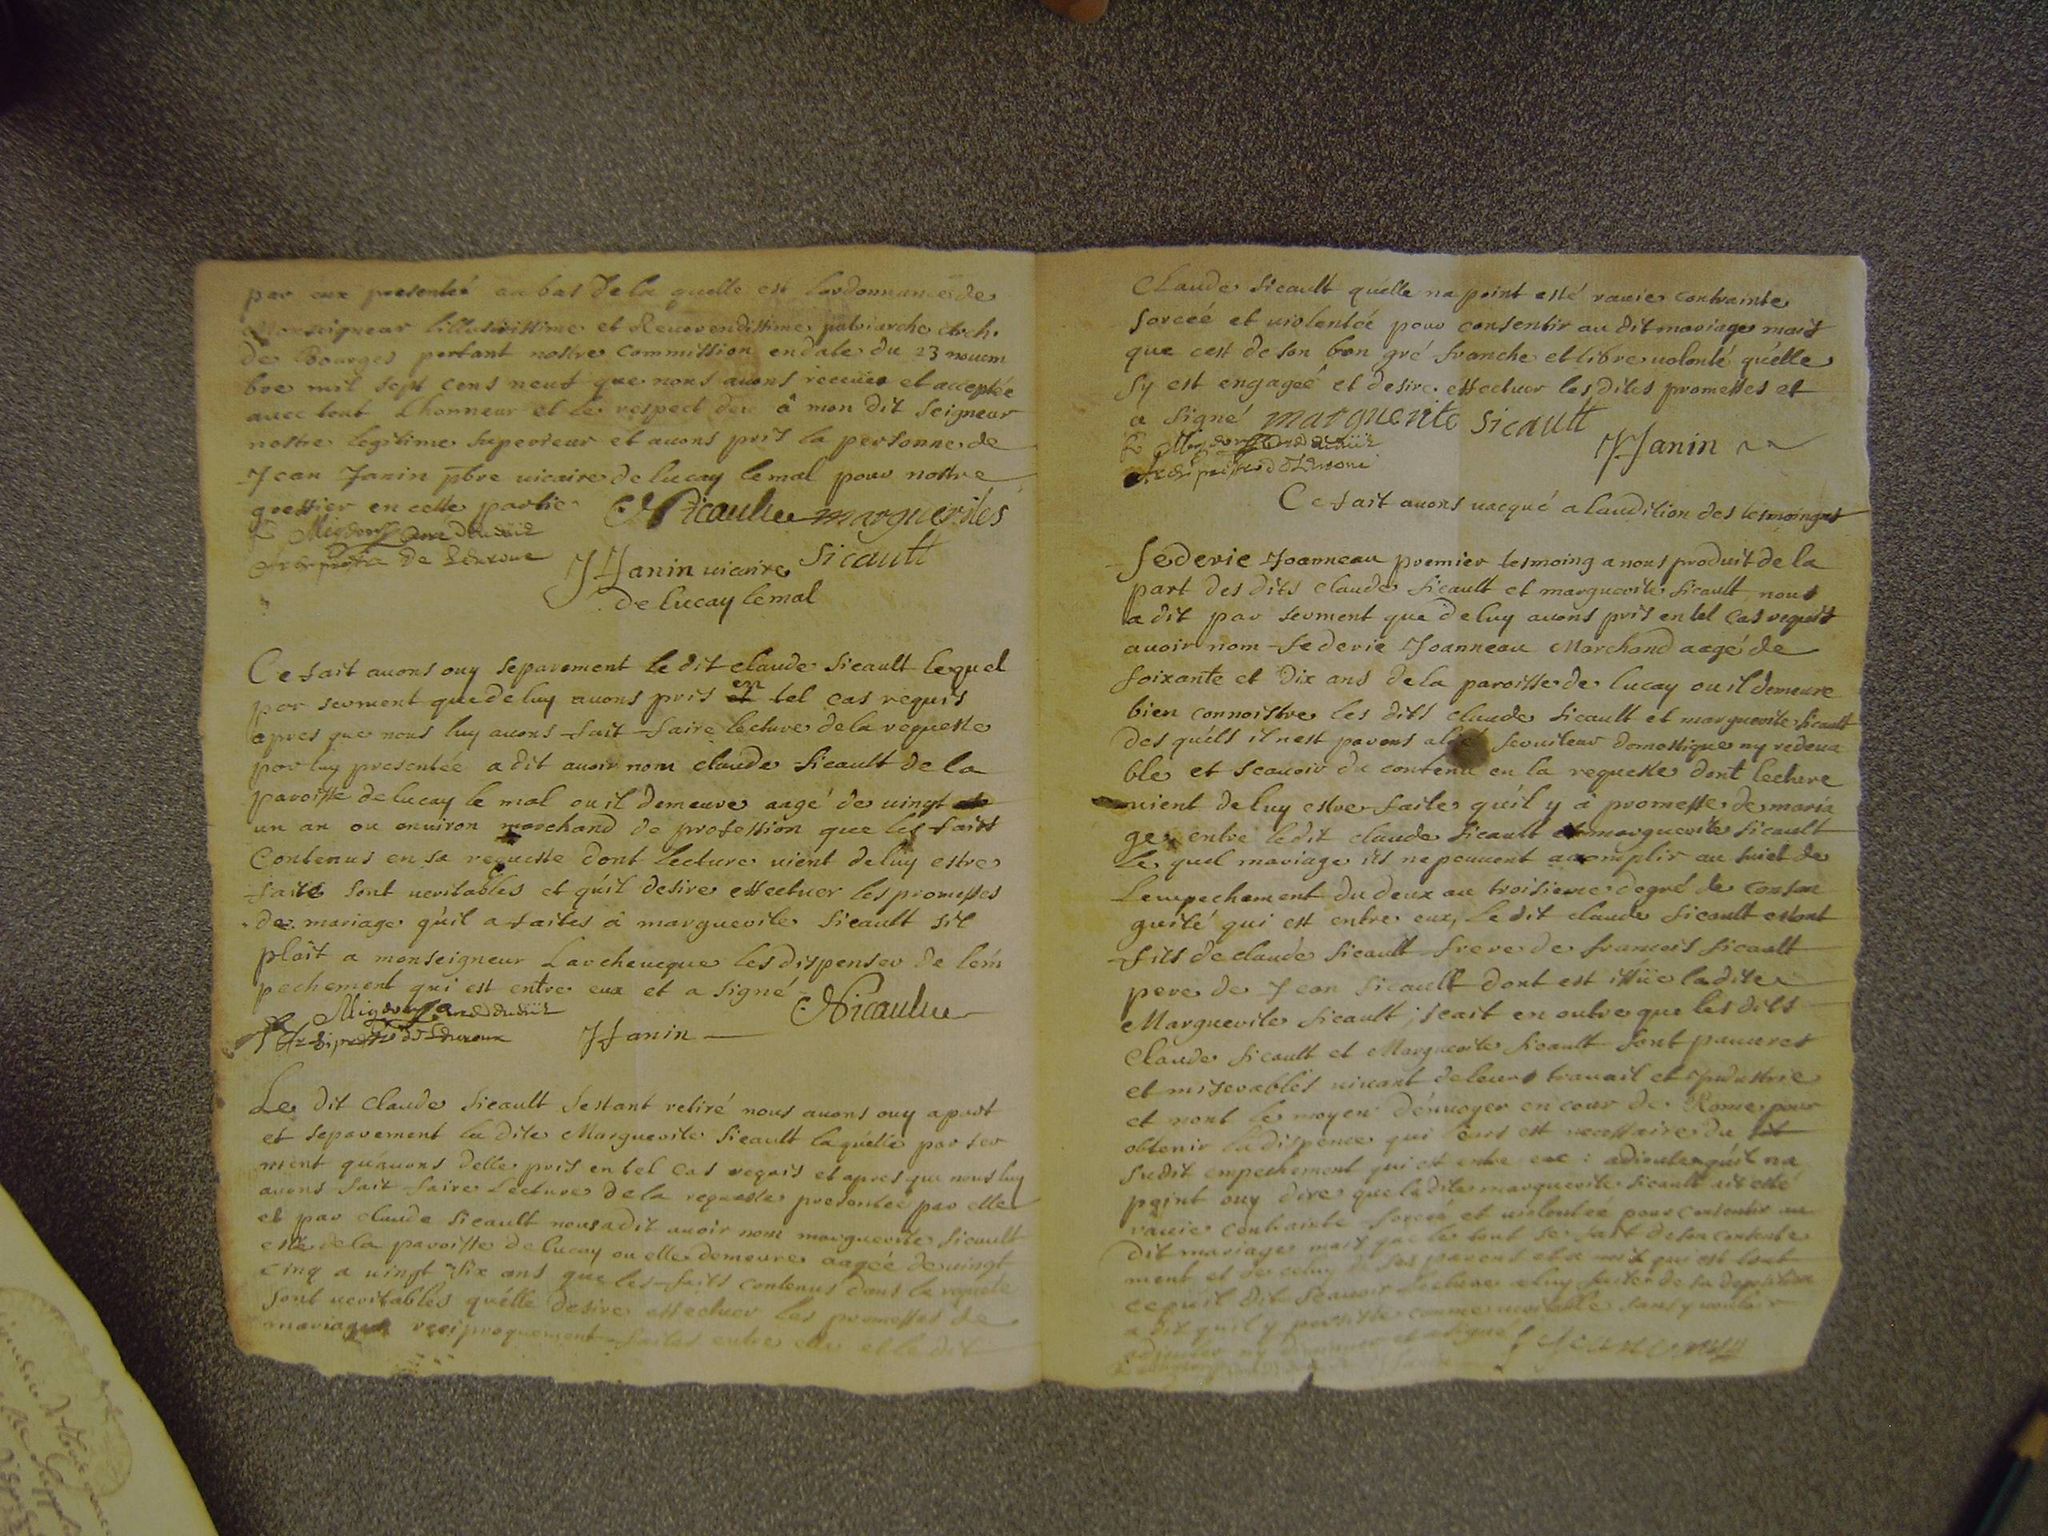 par eux presenteé au bas de la quelle est lordonnance de
Monseigneur lillustrissime et Reverendissime patriarche Arch.
de Bourges portant nostre commission en date du 23 novem
bre mil sept cens neuf que nous avons receüe et acceptée
avec tout Lhonneur et le respect deu â mon dit seigneur
nostre legitime superieur et avons pris la personne de
Jean Janin pbre vicaire de lucay lemal pour nostre
greffier en cette partie CSicault marguerites
sicault
JJanin vicaire
de lucay lemal
Ce fait avons ouy separement le dit claude sicault lequel
par serment que de luy avons pris en tel cas requis
apres que nous luy avons fait faire lecture de la requeste
par luy presentée a dit avoir nom claude sicault de la
paroisse de lucay le mal ou il demeure aagé de vingt
un an ou environ marchand de profession que les faits
Contenus en sa requeste dont lecture vient de luy estre
faite sont veritables et quil desire effectuer les promesses
de mariage quil a faites â marguerite sicault sil
plait a monseigneur Larcheveque les dispenser de lém
pechement qui est entre eux et a signé CSicault
JJanin
Le dit Claude sicault sestant retiré nous avons ouy apart
et separement la dite Marguerite sicault laquelle par ser
ment qu'avons delle pris en tel cas requis et apres que nous luy
avons fait faire Lecture de la requeste presentée par elle
et par claude sicault nous a dit avoir nom marguerite sicault
de la paroisse de lucay ou elle demeure aagée de vingt
cinq a vingt six ans que les faits contenus dans la requete
sont veritables quélle desire effectuer les promesses de
mariage reciproquement faites entre elle et le dit
Claude sicault quélle na point esté ravie contrainte
forceé et violentée pour consentir au dit mariage mais
que cest de son bon gré franche et libre volonté quélle
sy est engageé et desire effectuer les dites promesses et
a signé marguerite sicault
JJanin
Ce fait avons vacqué a laudition des tesmoings
féderie Joanneau premier tesmoing a nous produit de la
part des dits claude sicault et marguerite sicault nous
a dit par serment que de luy avons pris en tel cas requis
avoir nom federie Joanneau Marchand aagé de
soixante et dix ans de la paroisse de lucay ou il demeure
bien connoistre les dits claude sicault et marguerite sicault
des quéls il nest parens serviteur domestique ny redeva
ble et scavoir du contenu en la requeste dont lecture
vient de luy estre faite quil y â promesse de maria
ge entre ledit claude sicault et marguerite sicault
le quel mariage ils ne peuvent accomplir au suiet de
Lempechement du deux au troisieme degré de consan
guité qui est entre eux, le dit claude sicault estant
fils de claude sicault frere de francois sicault
pere de Jean sicault dont est issüe ladite
Marguerite sicault; scait en outre que les dits
Claude sicault et Marguerite sicault sont pauvres
et miserables vivant de leurs travail et industrie
et nont le moyen dénvoyer en cour de Rome pour
obtenir la dispence qui leurs est necessaire du
sudit empechement qui est entre eux: adioute quil na
point ouy dire que ladite marguerite sicault ait esté
ravie contrainte forcée et violentée pour consentir au
dit mariage mais que le tout se fait de son consente
ment et de celuy de ses parens et amis qui est tout
ce quil dit scavoir lecture a luy faite de sa deposition
a dit quil y persiste comme veritable sans y vouloir
adiouter ny diminuer et a signé